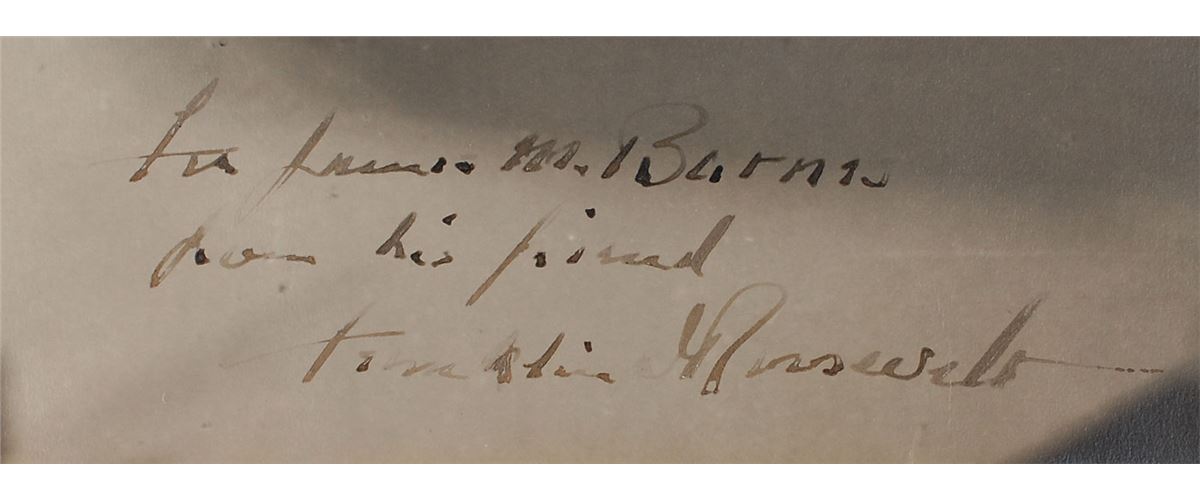 For James M. Barnes
from his friend
Franklin D Roosevelt